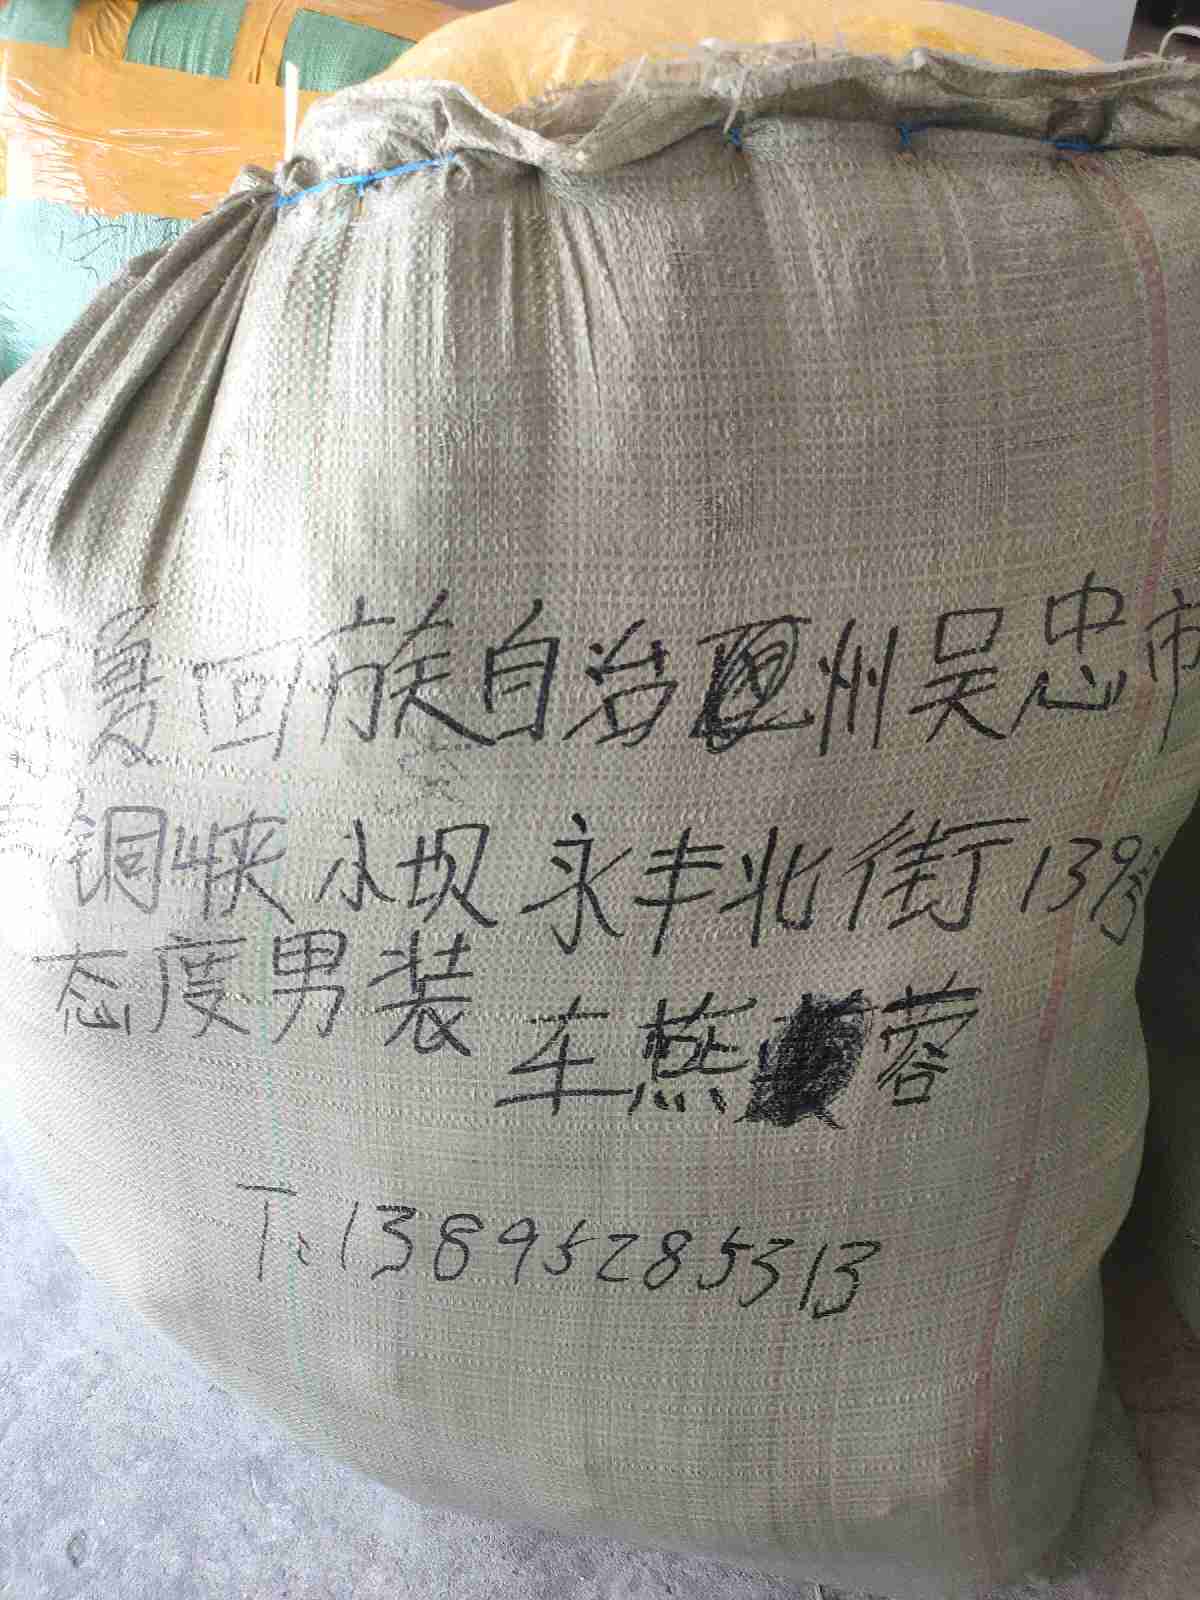 宁夏回族自治州吴忠市
青铜峡小坝永丰北街139号
态度男装
车燕蓉
T:13895285313